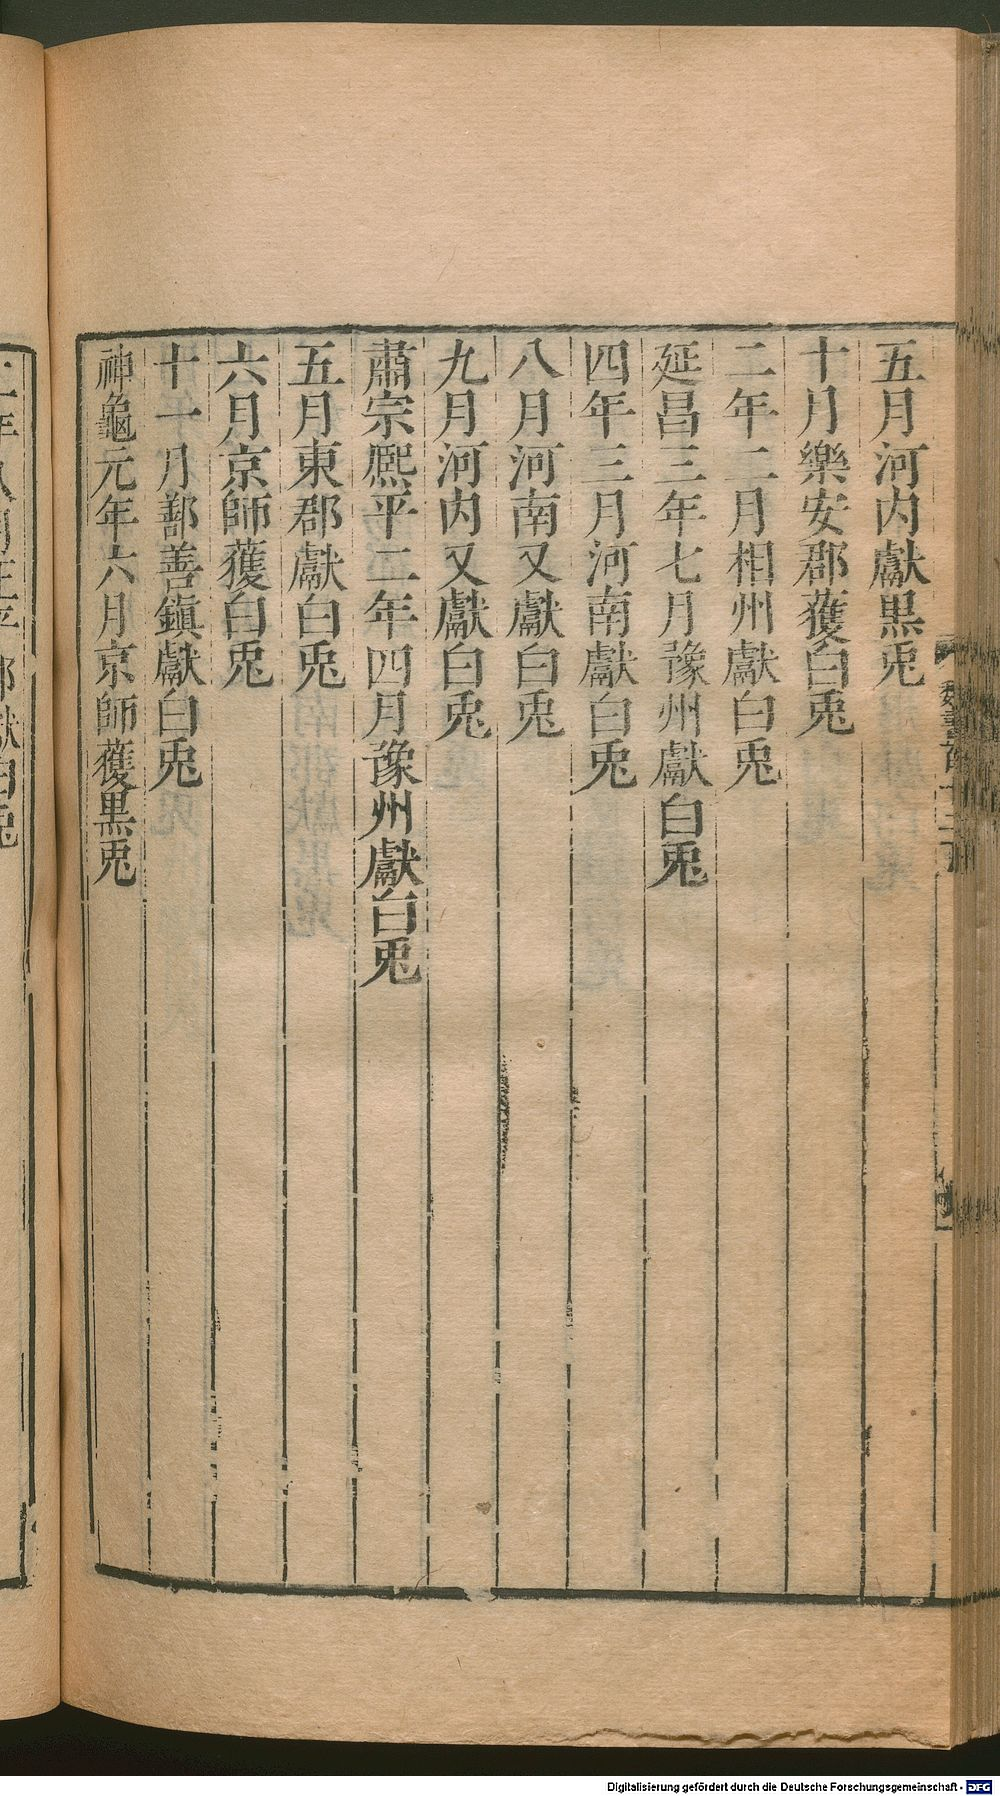 五月河内獻黑兎
十月樂安郡獲白兎
二年二月相州獻白兎
延昌三年七月豫州獻白兎
四年三月河南獻白兎
八月河南又獻白兎
九月河内又獻白兎
肅宗熈平二年四月豫州獻白兎
五月東郡獻白兎
六月京師獲白兎
十一月鄯善鎭獻白兎
神龜元年六月京師獲黒兎
Digitalisierung gefördert durch die Deutsche Forschungsgemeinschaft - DFG